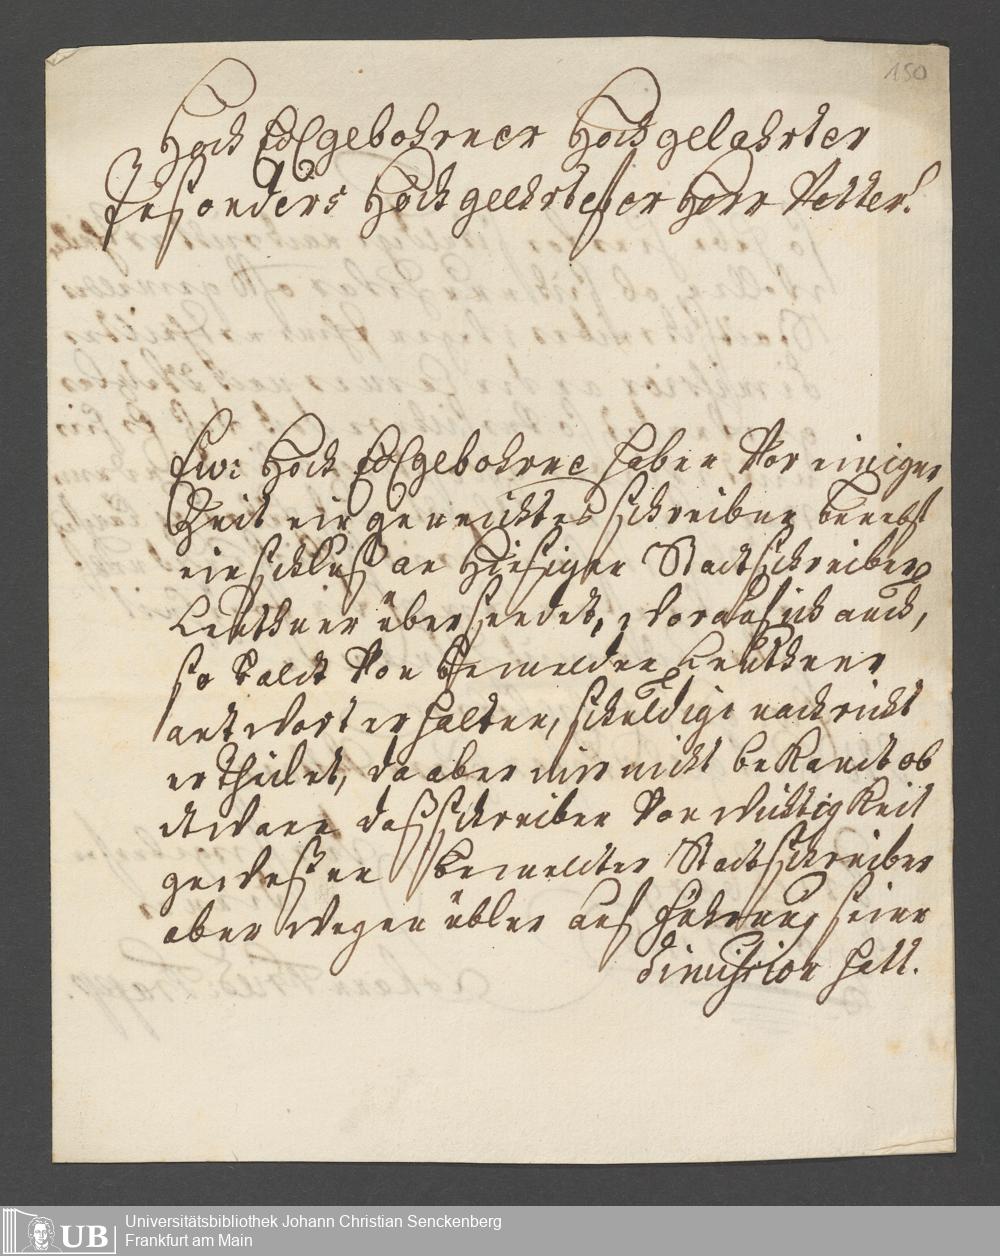 150
Hoch Edlgebohrner Hochgelahrter
Insonders Hochgeehrtester Herr Vetter!
Ew: Hoch Edlgebohrne haben Vor einiger
Zeit ein geneichtes schreiben benebst
einschluß an Hiesigen Stadtschreiber
Leuthner übersendet, Worauf ich auch,
so baldt Von bemelden Leuthner
antwort erhalten, schuldige nachricht
ertheilet, da aber mir nicht bekandt ob
etwann daß schreiben Von Wichtigkeit
gewesen bemelter Stadtschreiber
aber Wegen übler aufführung seine
dimission hatt.
Universitätsbibliothek Johann Christian Senckenberg
Frankfurt am Main
UB